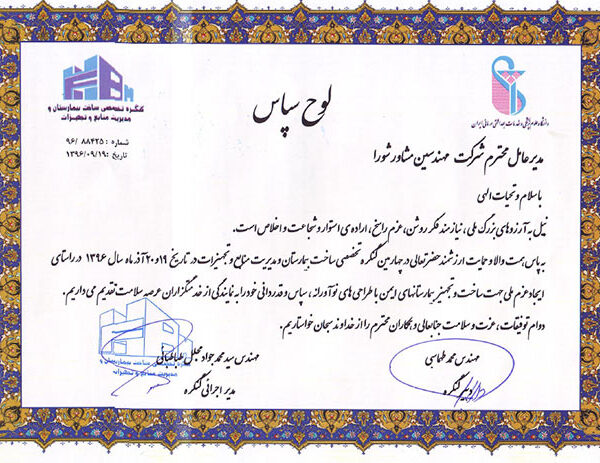 لوح سپاس
کنگره تخصصی ساخت بیمارستان و
مدیریت منابع و تجهیزات
شماره : ۸۸۴۲۵ /۹۶
تاریخ : ۱۳۹۶/۰۹/۱۹
دانشگاه علوم پزشکی و خدمات بهداشتی درمانی ایران
مدیرعامل محترم شرکت مهندسین مشاور شورا
با سلام و تحیات الهی
نیل به آرزوهای بزرگ ملی، نیازمند فکر روشن، عزم راسخ، اراده ی استوار و شجاعت و اخلاص است.
به پاس همت والا و حمایت ارزشمند حضرتعالی در چهارمین کنگره تخصصی ساخت بیمارستان و مدیریت منابع و تجهیزات در تاریخ ۱۹ و ۲۰ آذر ماه سال ۱۳۹۶ در راستای
ایجاد عزم ملی جهت ساخت و تجهیز بیمارستانهای ایمن با طراحی های نوآورانه، سپاس و قدردانی خود را به نمایندگی از خدمتگزاران عرصه سلامت تقدیم می داریم.
دوام توفیقات، عزت و سلامت جنابعالی و همکاران محترم را از خداوند سبحان خواستاریم.
مهندس محمد طهماسی
دبیر کنگره
مهندس سید محمد جواد مجلل طباطبائی
مدیر اجرائی کنگره
کنگره تخصصی ساخت بیمارستان و
مدیریت منابع و تجهیزات